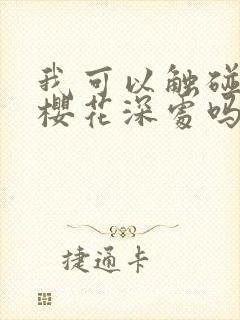 我可以触碰
樱花深处吗
捷通卡